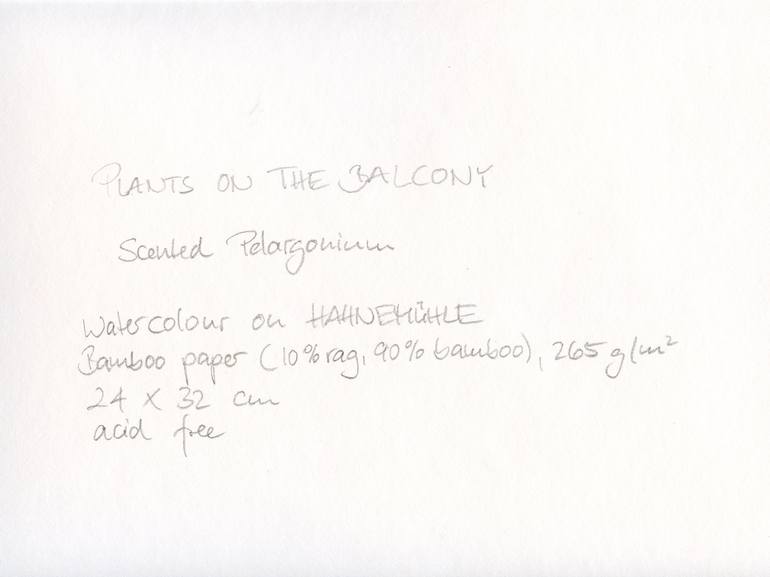 PLANTS ON THE BALCONY
Scented Pelargonium
Watercolour on HAHNEMÜHLE
Bamboo paper (10% rag, 90% bamboo), 265 g/m²
24 x 32 cm
acid free